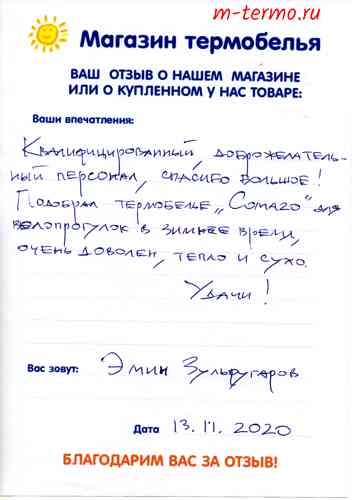 m-termo.ru
Магазин термобелья
ВАШ ОТЗЫВ О НАШЕМ МАГАЗИНЕ
ИЛИ О КУПЛЕННОМ У НАС ТОВАРЕ:
Ваши впечатления:
Квалифицированный, доброжелатель-
ный персонал, спасибо большое!
Подобрал термобелье „Comazo“ для
велопрогулок в зимнее время,
очень доволен, тепло и сухо.
Удачи!
Вас зовут: Эмин Зульфугаров
Дата 13.11.2020
БЛАГОДАРИМ ВАС ЗА ОТЗЫВ!